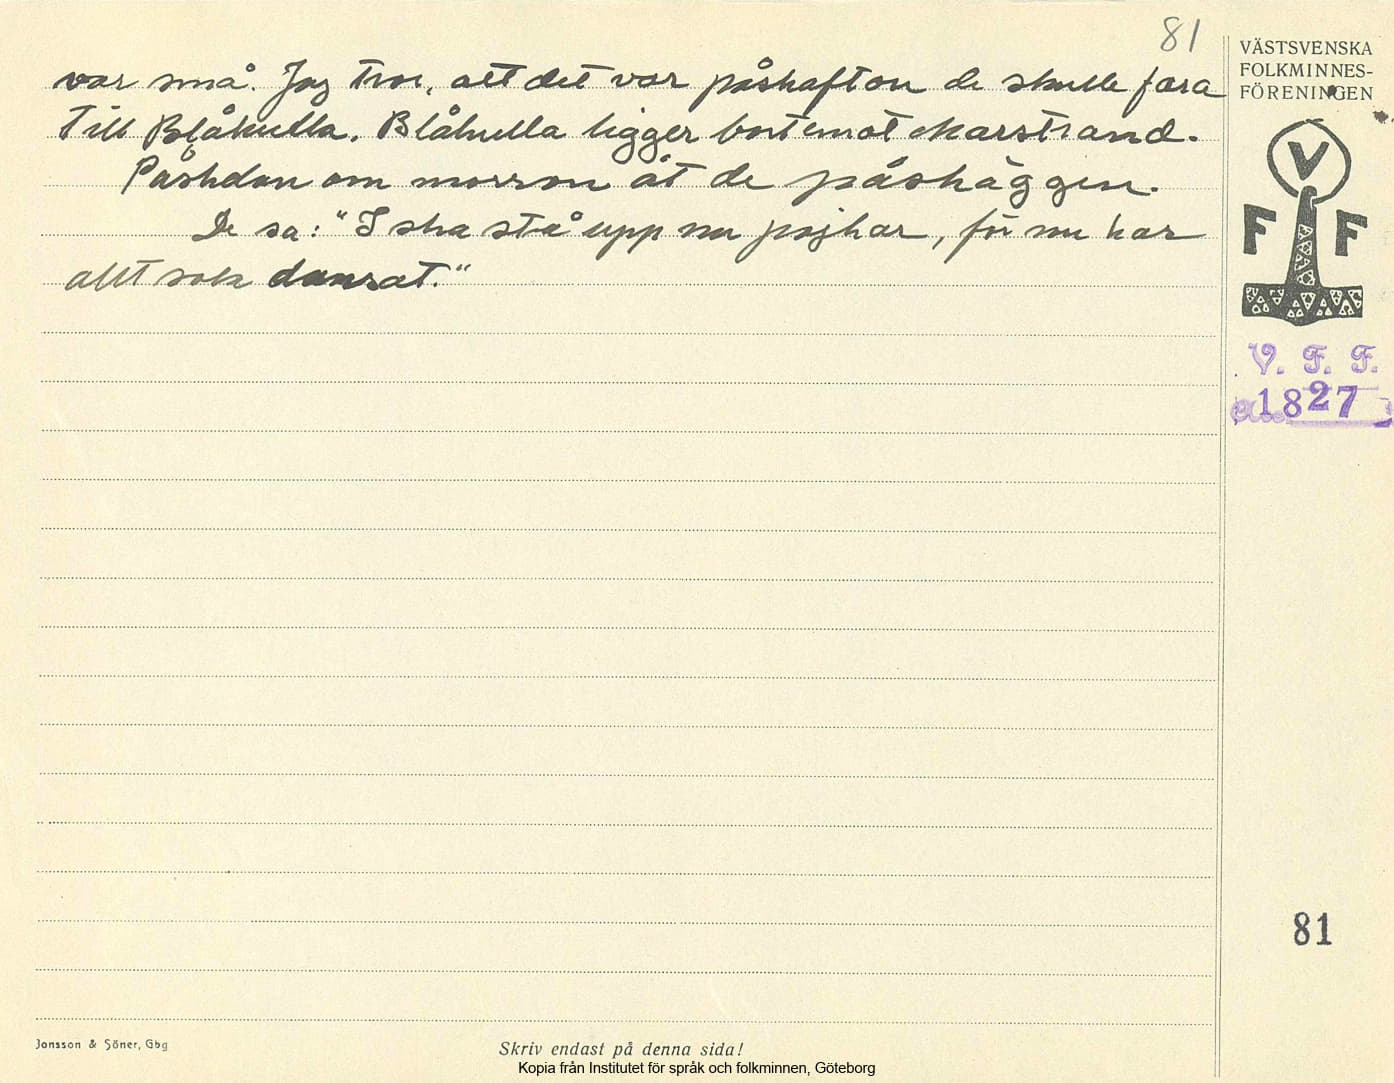 81
var små. Jag tror, att det var påskafton de skulle fara
till Blåkulla. Blåkulla ligger bortemot Marstrand.
Påskdan om morron åt de påskäggen.
De sa: "I ska stå upp nu pojkar, för nu har
allt solen dansat."
VÄSTSVENSKA
FOLKMINNES-
FÖRENINGEN
V
F F
V. F. F.
1827
81
Jonsson & Söner, Gbg
Skriv endast på denna sida!
Kopia från Institutet för språk och folkminnen, Göteborg